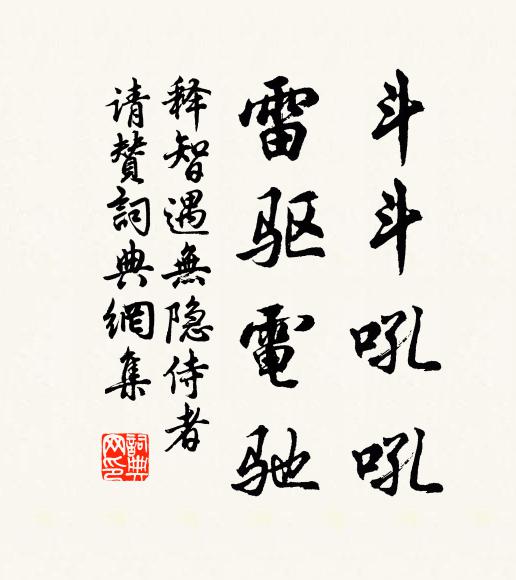 斗斗吼吼
雷驱電驰
释智遇無隐侍者
请赞詞典網集
詞典网印